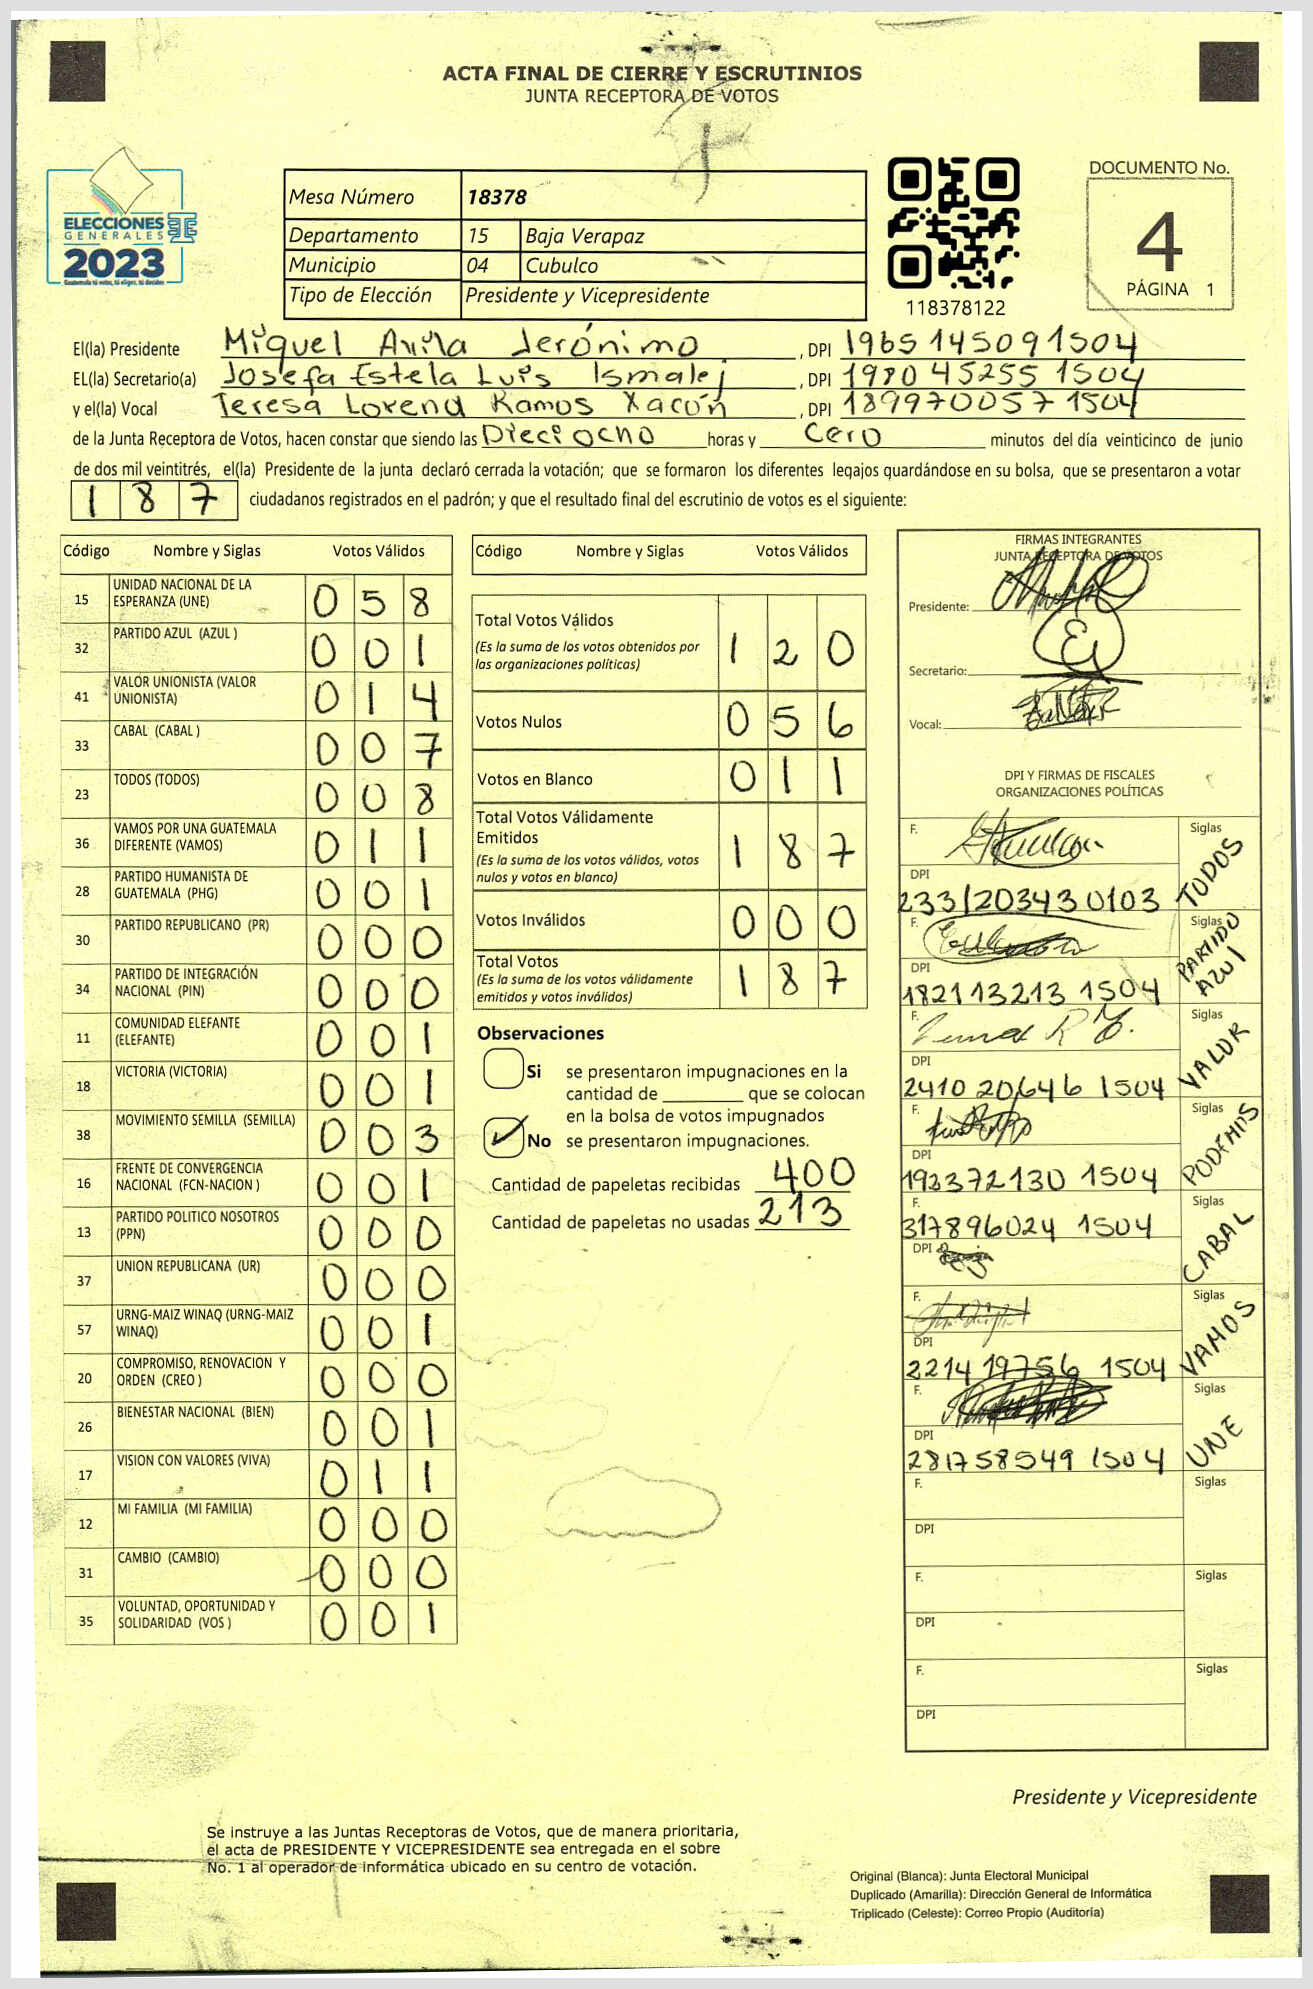 ACTA FINAL DE CIERRE Y ESCRUTINIOS
JUNTA RECEPTORA DE VOTOS
ELECCIONES
GENERALES
2023
Guatemala tú votas, tú eliges, tú decides
Mesa Número 18378
Departamento 15 Baja Verapaz
Municipio 04 Cubulco
Tipo de Elección Presidente y Vicepresidente
118378122
DOCUMENTO No.
4
PÁGINA 1
El(la) Presidente Miguel Avila Jerónimo , DPI 1965145091504
EL(la) Secretario(a) Josefa Estela Luis Ismalej , DPI 1980 45255 1504
y el(la) Vocal Teresa Lorena Ramos Xacón , DPI 189970057 1504
de la Junta Receptora de Votos, hacen constar que siendo las Dieciocho horas y Cero minutos del día veinticinco de junio
de dos mil veintitrés, el(la) Presidente de la junta declaró cerrada la votación; que se formaron los diferentes legajos guardándose en su bolsa, que se presentaron a votar
187 ciudadanos registrados en el padrón; y que el resultado final del escrutinio de votos es el siguiente:
Código Nombre y Siglas Votos Válidos
15 UNIDAD NACIONAL DE LA ESPERANZA (UNE) 058
32 PARTIDO AZUL (AZUL ) 001
41 VALOR UNIONISTA (VALOR UNIONISTA) 014
33 CABAL (CABAL ) 007
23 TODOS (TODOS) 008
36 VAMOS POR UNA GUATEMALA DIFERENTE (VAMOS) 011
28 PARTIDO HUMANISTA DE GUATEMALA (PHG) 001
30 PARTIDO REPUBLICANO (PR) 000
34 PARTIDO DE INTEGRACIÓN NACIONAL (PIN) 000
11 COMUNIDAD ELEFANTE (ELEFANTE) 001
18 VICTORIA (VICTORIA) 001
38 MOVIMIENTO SEMILLA (SEMILLA) 003
16 FRENTE DE CONVERGENCIA NACIONAL (FCN-NACION ) 001
13 PARTIDO POLITICO NOSOTROS (PPN) 000
37 UNION REPUBLICANA (UR) 000
57 URNG-MAIZ WINAQ (URNG-MAIZ WINAQ) 001
20 COMPROMISO, RENOVACION Y ORDEN (CREO ) 000
26 BIENESTAR NACIONAL (BIEN) 001
17 VISION CON VALORES (VIVA) 011
12 MI FAMILIA (MI FAMILIA) 000
31 CAMBIO (CAMBIO) 000
35 VOLUNTAD, OPORTUNIDAD Y SOLIDARIDAD (VOS ) 001
Código Nombre y Siglas Votos Válidos
Total Votos Válidos 120
(Es la suma de los votos obtenidos por
las organizaciones políticas)
Votos Nulos 056
Votos en Blanco 011
Total Votos Válidamente
Emitidos 187
(Es la suma de los votos válidos, votos
nulos y votos en blanco)
Votos Inválidos 000
Total Votos 187
(Es la suma de los votos válidamente
emitidos y votos inválidos)
Observaciones
Si se presentaron impugnaciones en la
cantidad de ________ que se colocan
en la bolsa de votos impugnados
No se presentaron impugnaciones.
Cantidad de papeletas recibidas 400
Cantidad de papeletas no usadas 213
FIRMAS INTEGRANTES
JUNTA RECEPTORA DE VOTOS
Presidente:
Secretario:
Vocal:
DPI Y FIRMAS DE FISCALES
ORGANIZACIONES POLÍTICAS
F. Siglas TODOS
DPI 233120343 0103
F. Siglas PARTIDO AZUl
DPI 182113213 1504
F. Siglas VALOR
DPI 2410 20646 1504
F. Siglas PODEMIS
DPI 192372130 1504
F. 317896024 1504 Siglas CABAL
DPI
F. Siglas VAMOS
DPI 2214 19756 1504
F. Siglas UNE
DPI 281758549 1504
F. Siglas
DPI
F. Siglas
DPI
F. Siglas
DPI
Presidente y Vicepresidente
Se instruye a las Juntas Receptoras de Votos, que de manera prioritaria,
el acta de PRESIDENTE Y VICEPRESIDENTE sea entregada en el sobre
No. 1 al operador de informática ubicado en su centro de votación.
Original (Blanca): Junta Electoral Municipal
Duplicado (Amarilla): Dirección General de Informática
Triplicado (Celeste): Correo Propio (Auditoría)